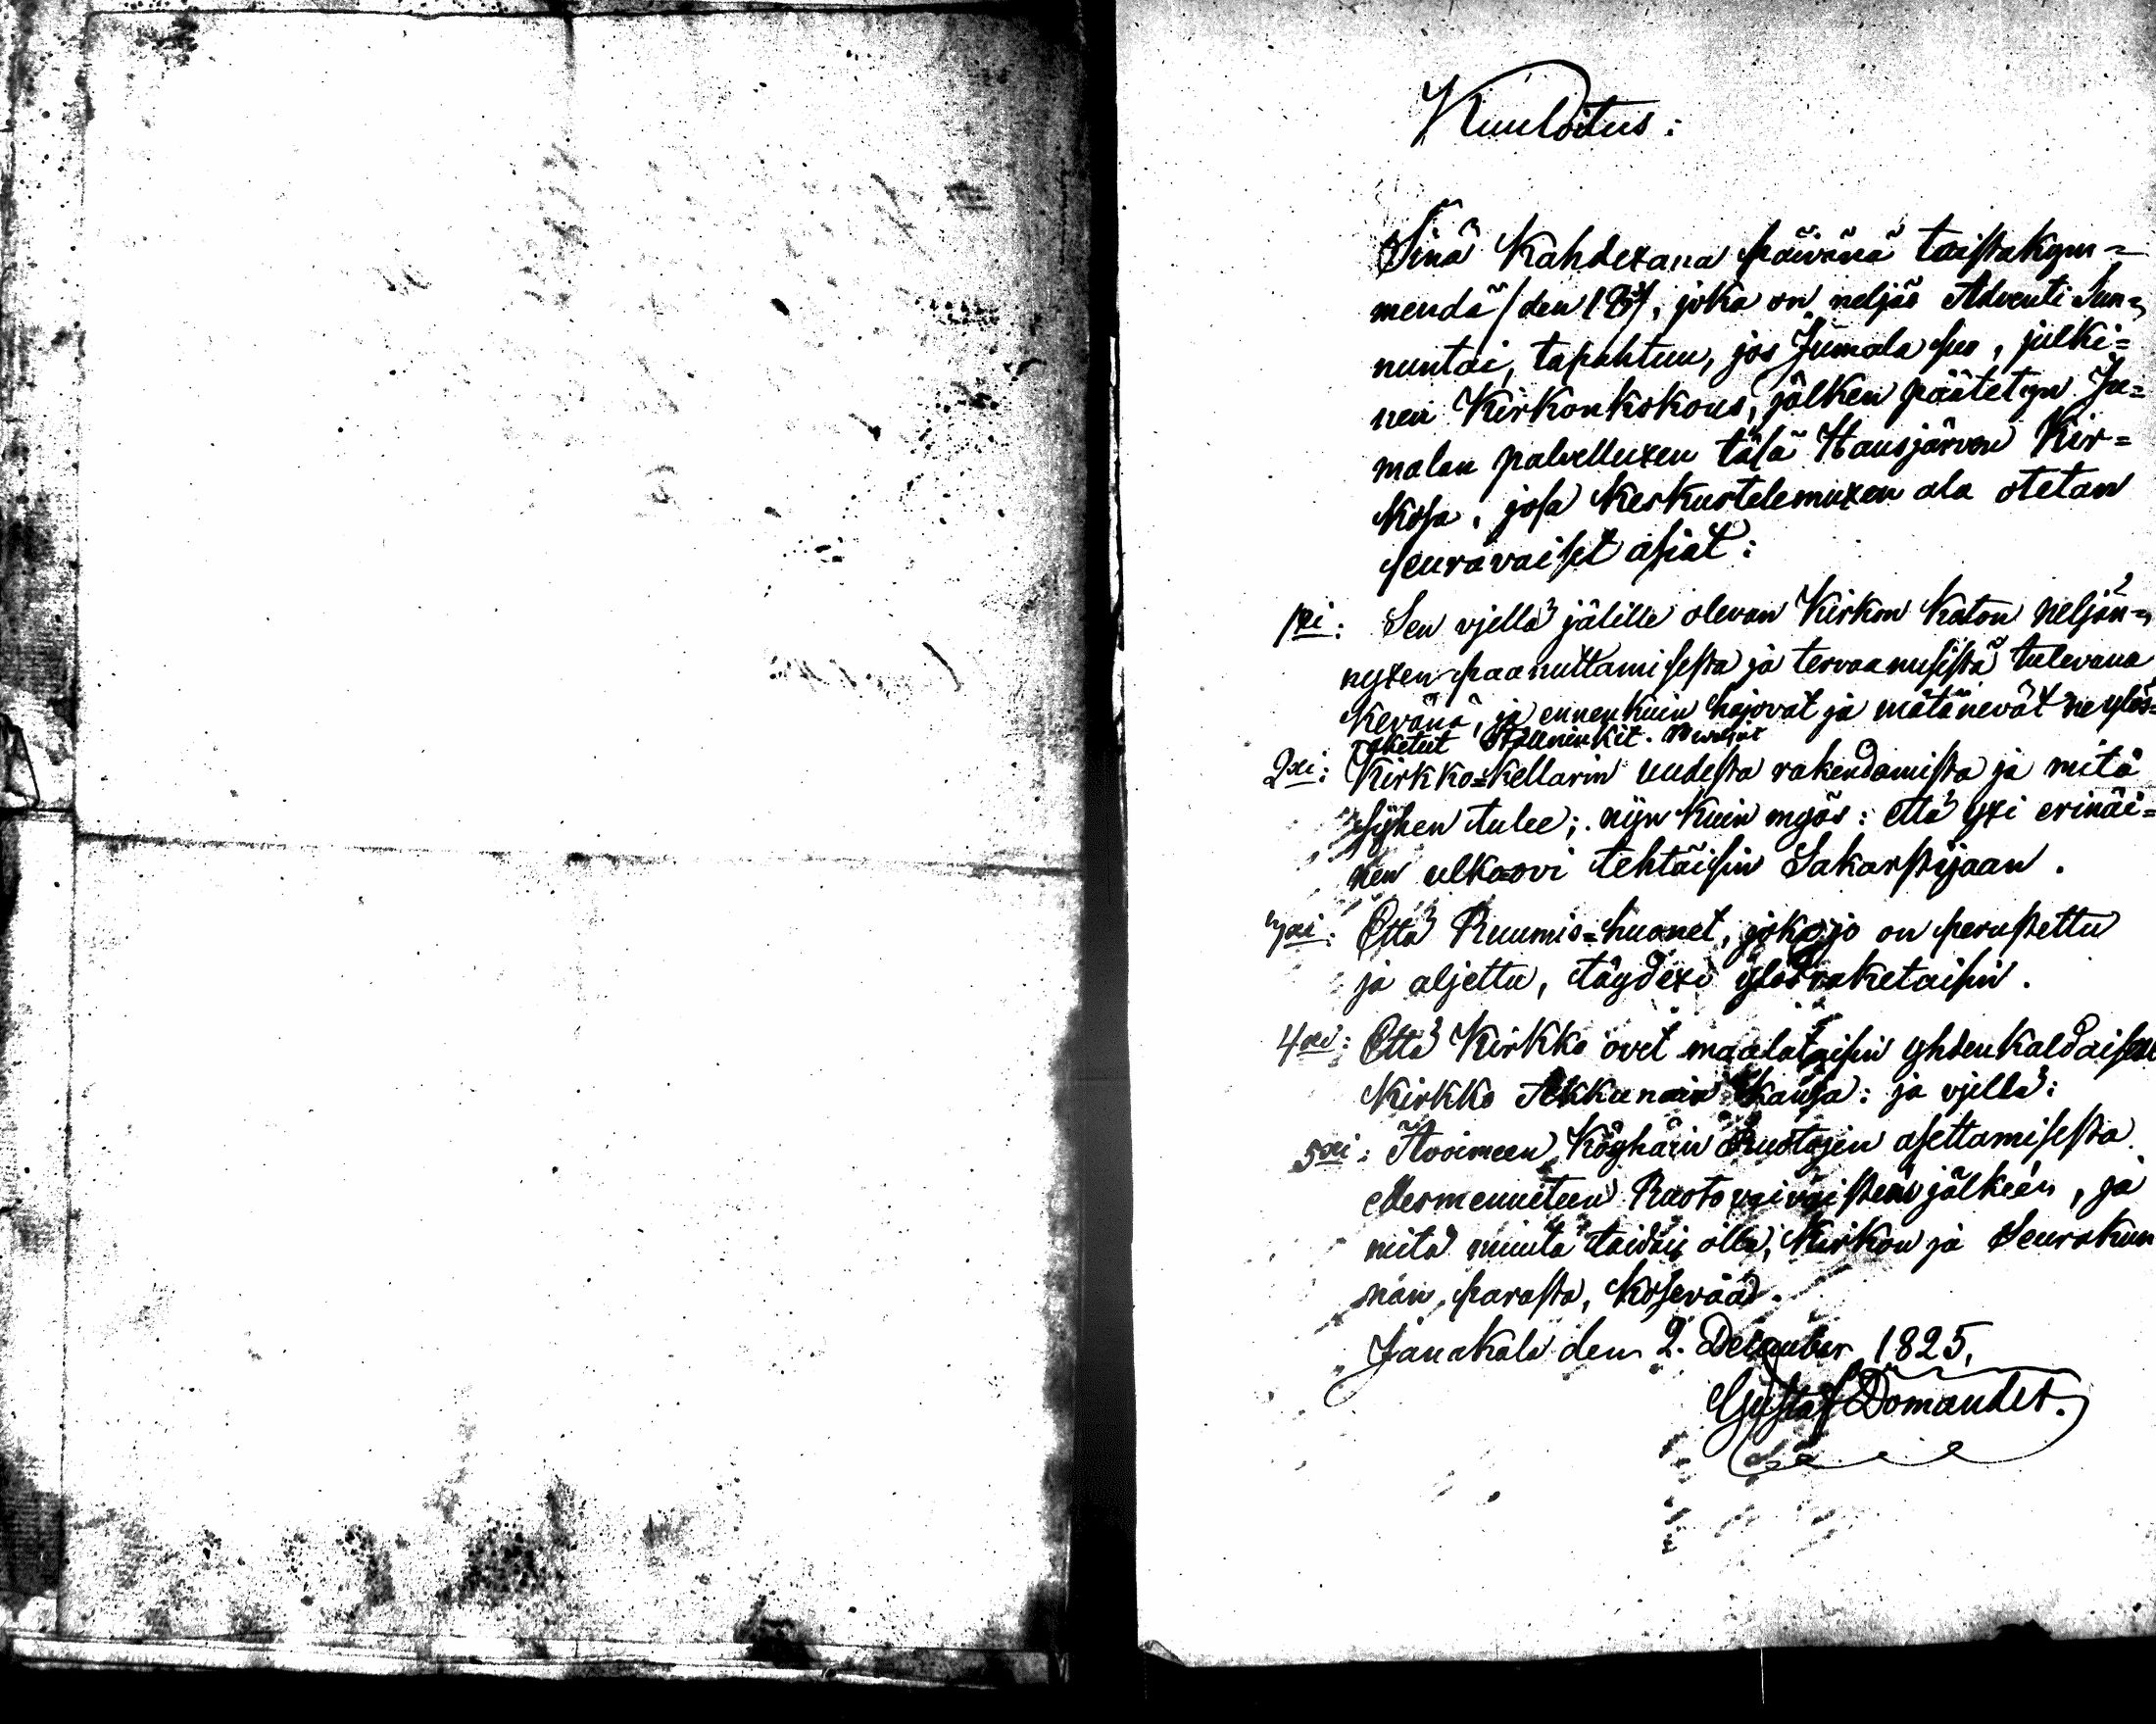 Kuuloitus:
Sinä Kahdexana päivänä toistakym=
mendä / den 18de/, joka on neljäs Adventi Sun=
nuntai, tapahtuu, jos Jumala suo, julki=
nen Kirkonkokous, jälken päätetyn Ju=
malan palvelluxen täsä Hausjärven Kir=
kosa, josa Keskustelemuxen ala otetan
seuravaiset asiat:
1xi: Sen vjellä jälille olevan Kirkon Katon neljän=
nyxen paanuttamisesta ja tervaamisesta tulevana
Kevänä, ja ennenkuin hajovat ja mätänevät ne ylös=
raketut Stälninkit.
2xi: Kirkko=Kellarin uudesta rakendamista ja mitä
sijhen tulee; nijn kuin myös: että yxi erinäi=
nen ulko=ovi tehtäisin Sakarstijaan.
3xi: Että Ruumis=huonet, joka jo on perustettu
ja aljettu, täydexi ylösraketaisin.
4xi: Että Kirkko ovet maalataisin yhdenkaldaisen
Kirkko Akkunain kansa: ja vjellä:
5xi: Avoimeen Köyhäin Ruotojen asettamisesta
edesmenneiten Ruotovaivaisten jälkeen, ja
mitä muuta taidais olla, Kirkon ja Seurakun
nan parasta, koskevaa.
Janakala den 2. December 1825,
Gustaf Domander.